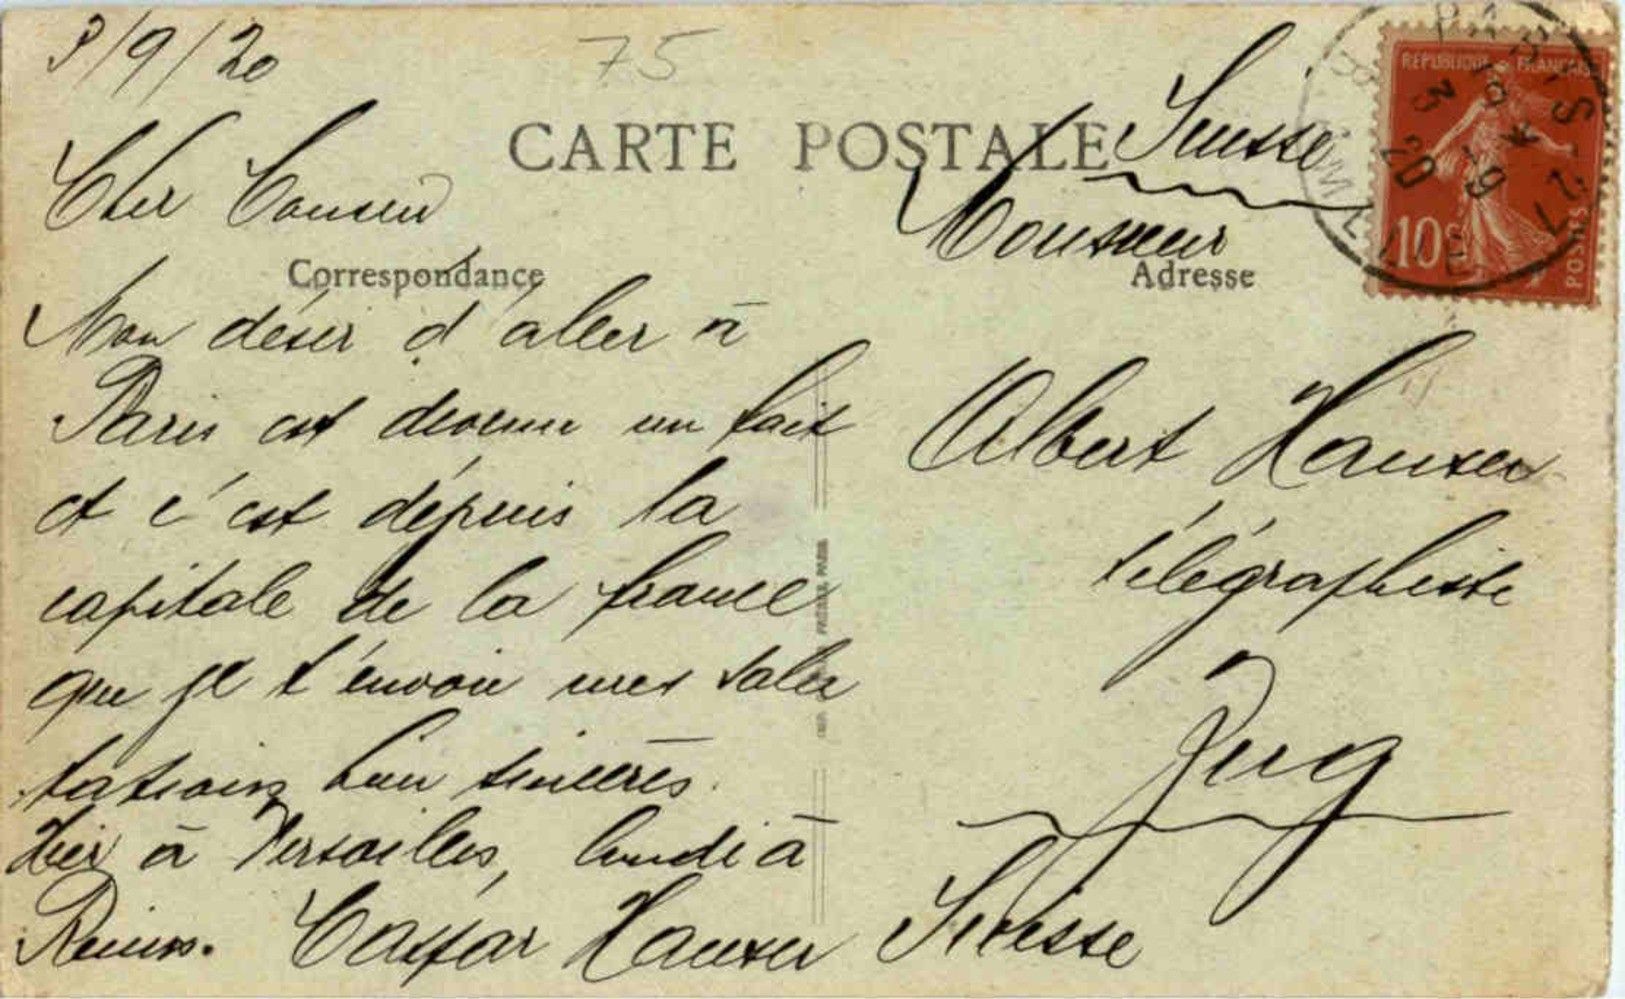 3/9/20
75
CARTE POSTALE
Cher Cousin
Correspondance
Mon désir d'aller à
Paris est devenu un fait
et c'est dépuis la
capitale de la france
que je t'envoie mes salu
tations bien sincères.
Hier à Versailles, lundi à
Reims. Caspar Hauser
Suisse
Monsieur
Adresse
Albert Hauser
télégraphiste
Zug
Suisse
REPUBLIQUE FRANÇAISE
10c
POSTES
3 -9
20
PARIS